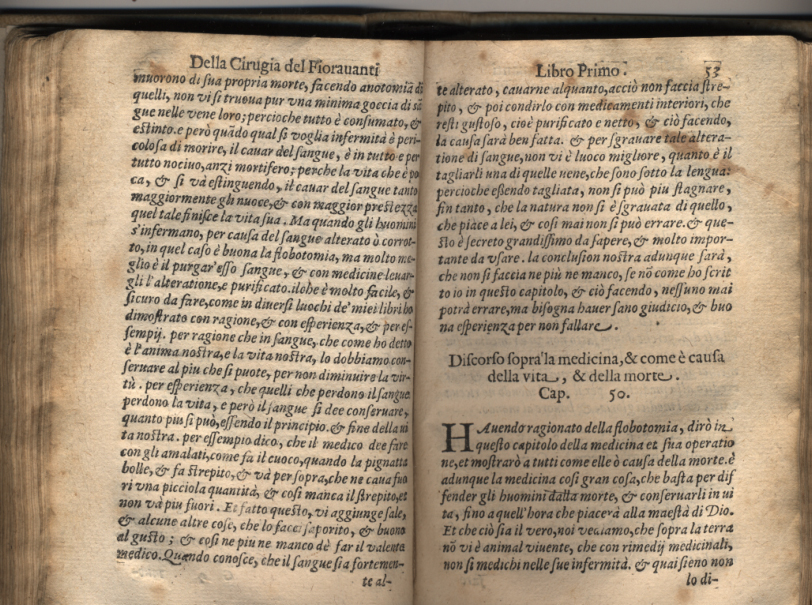 Della Cirugia del Fioravanti
muorono di sua propria morte, facendo anotomia di
quelli, non vi si truoua pur vna minima goccia di sã
gue nelle vene loro; percioche tutto è consumato, &
estinto. e però quãdo qual si voglia infermità è peri-
colosa di morire, il cauar del sangue, è in tutto e per
tutto nociuo, anzi mortifero; perche la vita che è po
ca, & si và estinguendo, il cauar del sangue tanto
maggiormente gli nuoce, & con maggior prestezza
quel tale finisce la vita sua. Ma quando gli huomini
s'infermano, per causa del sangue alterato ò corrot-
to, in quel caso è buona la flobotomia, ma molto me-
glio è il purgar'esso sangue, & con medicine leuar-
gli l'alteratione, e purificato. ilche è molto facile, &
sicuro da fare, come in diuersi luochi de' miei libri ho
dimostrato con ragione, & con esperienza, & per es-
sempij. per ragione che in sangue, che come ho detto
è l'anima nostra, e la vita nostra, lo dobbiamo con-
seruare al piu che si puote, per non diminuire la vir-
tù. per esperienza, che quelli che perdono il sangue
perdono la vita, e però il sangue si dee conseruare,
quanto piu si può, essendo il principio. & fine della ui
ta nostra. per essempio dico, che il medico dee fare
con gli amalati, come fa il cuoco, quando la pignatta
bolle, & fa strepito, & và per sopra, che ne caua fuo
ri vna picciola quantità, & cosi manca il strepito, et
non và piu fuori. Et fatto questo, vi aggiunge sale,
& alcune altre cose, che lo facci saporito, & buono
al gusto; & cosi ne piu ne manco dè far il valente
medico. Quando conosce, che il sangue sia fortemen-
te al-
Libro Primo. 53
te alterato, cauarne alquanto, acciò non faccia stre-
pito, & poi condirlo con medicamenti interiori, che
resti gustoso, cioè purificato e netto, & ciò facendo,
la causa sarà ben fatta. & per sgrauare tale altera-
tione di sangue, non vi è luoco migliore, quanto è il
tagliarli una di quelle uene, che sono sotto la lengua:
percioche eßendo tagliata, non si può piu stagnare,
fin tanto, che la natura non si è sgrauata di quello,
che piace a lei, & cosi mai non si può errare. & que-
sto è secreto grandissimo da sapere, & molto impor-
tante da vsare. la conclusion nostra adunque sarà,
che non si faccia ne piu ne manco, se nõ come ho scrit
to io in questo capitolo, & ciò facendo, nessuno mai
potrà errare, ma bisogna hauer sano giudicio, & buo
na esperienza per non fallare.
Discorso sopra la medicina, & come è causa
della vita, & della morte.
Cap. 50.
HAuendo ragionato della flobotomia, dirò in
questo capitolo della medicina et sua operatio
ne, et mostrarò a tutti come elle ò causa della morte. è
adunque la medicina cosi gran cosa, che basta per dif
fender gli huomini dalla morte, & conseruarli in ui
ta, fino a quell'hora che piacerà alla maestà di Dio.
Et che ciò sia il vero, noi vediamo, che sopra la terra
nõ vi è animal viuente, che con rimedij medicinali,
non si medichi nelle sue infermità. & quai sieno non
lo di-